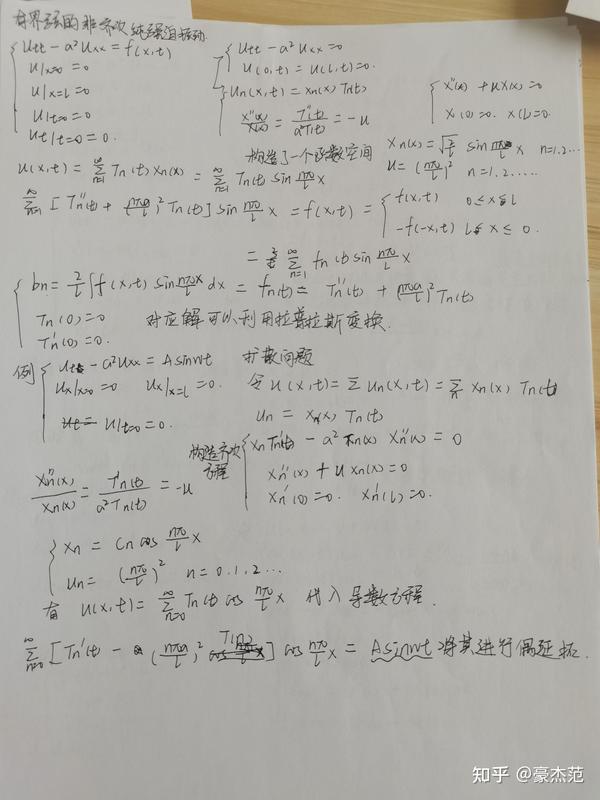 有界弦的非齐次纯强迫振动.
{ utt - a²uxx = f(x,t)
u|x=0 = 0
u|x=l = 0
u|t=0 = 0
ut|t=0 = 0.
{ utt - a²uxx = 0
u(0,t) = u(l,t) = 0.
un(x,t) = xn(x) Tn(t)
X''(x)/X(x) = T''(t)/a²T(t) = -u
{ X''(x) + uX(x) = 0
X(0) = 0. X(l) = 0.
构造了一个函数空间
Xn(x) = √(2/l) sin nπ/l x n=1.2...
u = (nπ/l)² n=1.2.....
u(x,t) = ∞Σn=1 Tn(t) Xn(x) = ∞Σn=1 Tn(t) sin nπ/l x
∞Σn=1 [Tn''(t) + (nπa/l)² Tn(t)] sin nπ/l x = f(x,t) = { f(x,t) 0≤x≤l
-f(-x,t) l≤x≤0.
= ∞Σn=1 fn(t) sin nπ/l x
{ bn = 2/l ∫f(x,t) sin nπx/l dx = fn(t) = Tn''(t) + (nπa/l)² Tn(t)
Tn(0) = 0 对应解可以利用拉普拉斯变换.
Tn'(0) = 0.
例 { ut - a²uxx = Asinwt 扩散问题
ux|x=0 = 0 ux|x=l = 0.
u|t=0 = 0.
令 u(x,t) = Σ un(x,t) = Σn xn(x) Tn(t)
un = xn(x) Tn(t)
构造齐次方程
{ xn Tn'(t) - a² Tn(x) Xn''(x) = 0
Xn''(x) + u xn(x) = 0
Xn'(0) = 0. Xn'(l) = 0.
Xn''(x)/xn(x) = Tn'(t)/a²Tn(t) = -u
{ Xn = Cn cos nπ/l x
un = (nπ/l)² n=0.1.2...
有 u(x,t) = ∞Σn=0 Tn(t) cos nπ/l x 代入导数方程.
∞Σn=0 [Tn'(t) - (nπa/l)² T(n)] cos nπ/l x = Asinwt 将其进行偶延拓.
知乎 @豪杰范